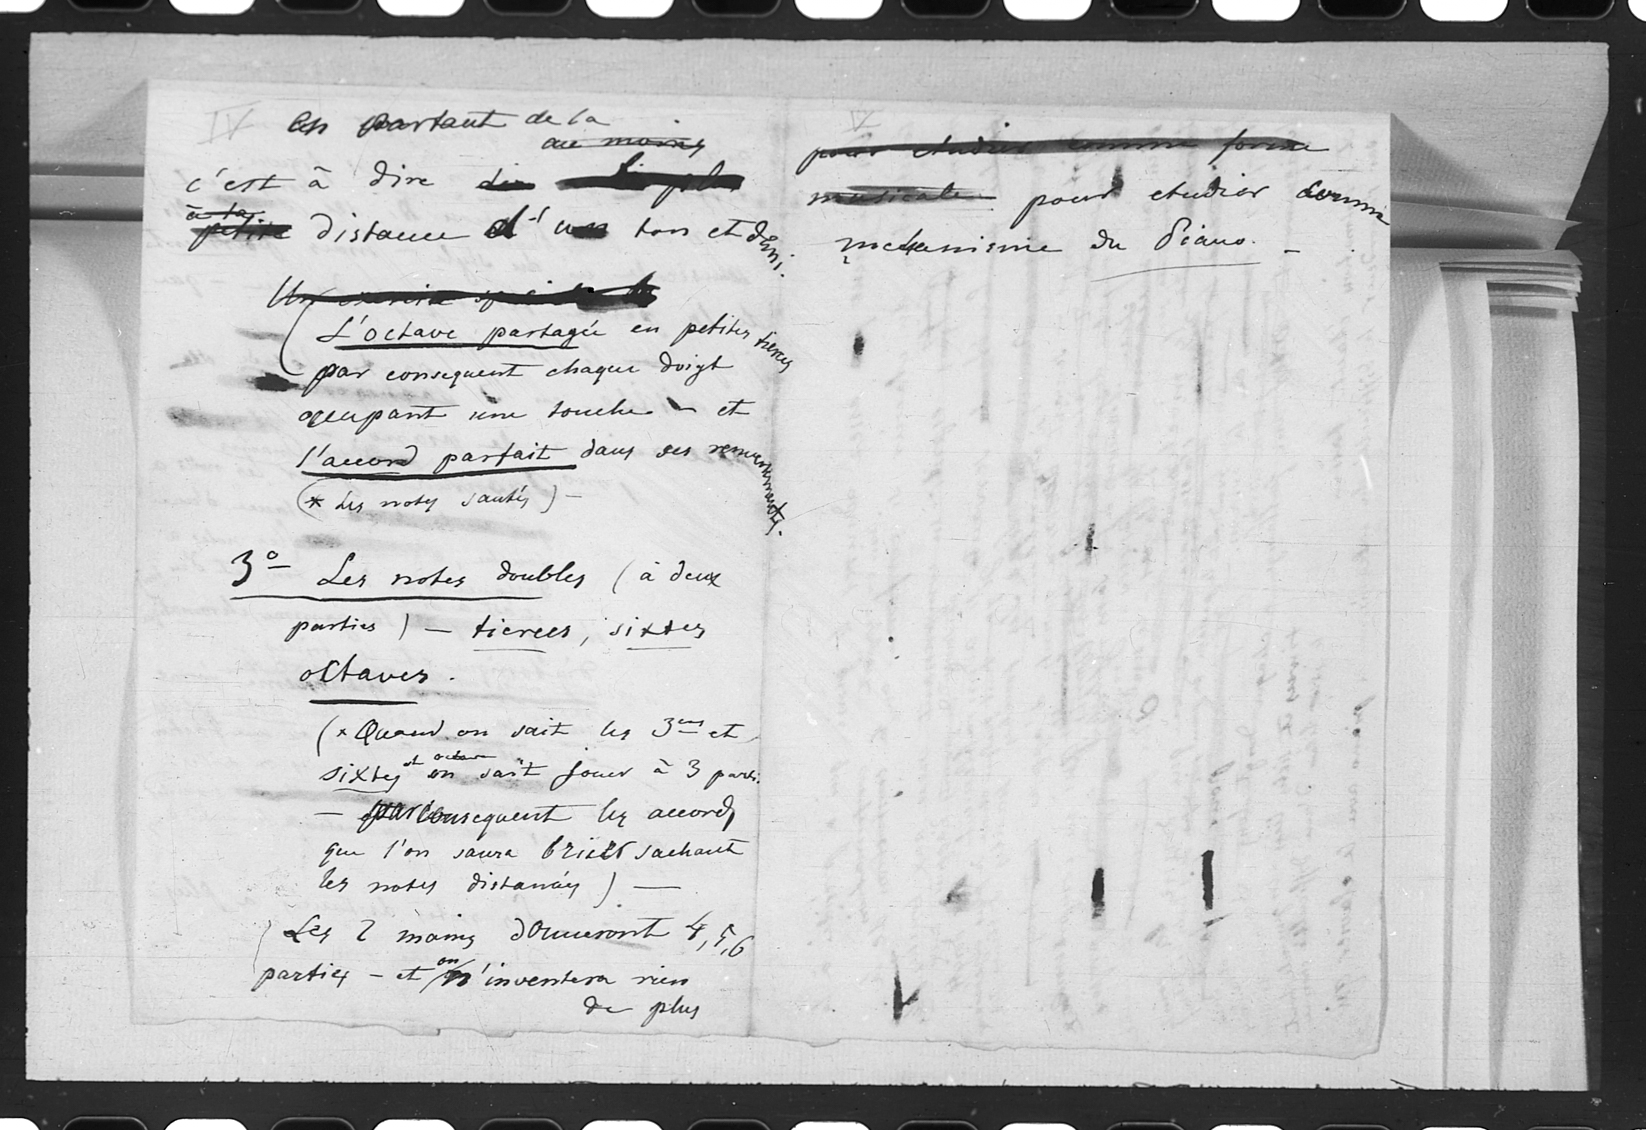 IV
en partant de la
au moins
c'est à dire de la plus
à la
petite distance d'un ton et demi.
Un exercice
L'octave partagée en petites tierces
par consequent chaque doigt
ocupant une touche – et
l'accord parfait dans ses renversements.
(* Les notes sautés) –
3o Les notes doubles (à deux
parties) – tierces, sixtes
octaves.
(* Quand on sait les 3ces et
sixtes et octave on sait jouer à 3 parti.
– par consequent les accords
que l'on saura briser sachant
les notes distancées) —
Les 2 mains donneront 4, 5, 6
parties – et on n'inventera rien
de plus
V
pour etudier comme forme
musicale pour etudier comme
mechanisme du Piano. –